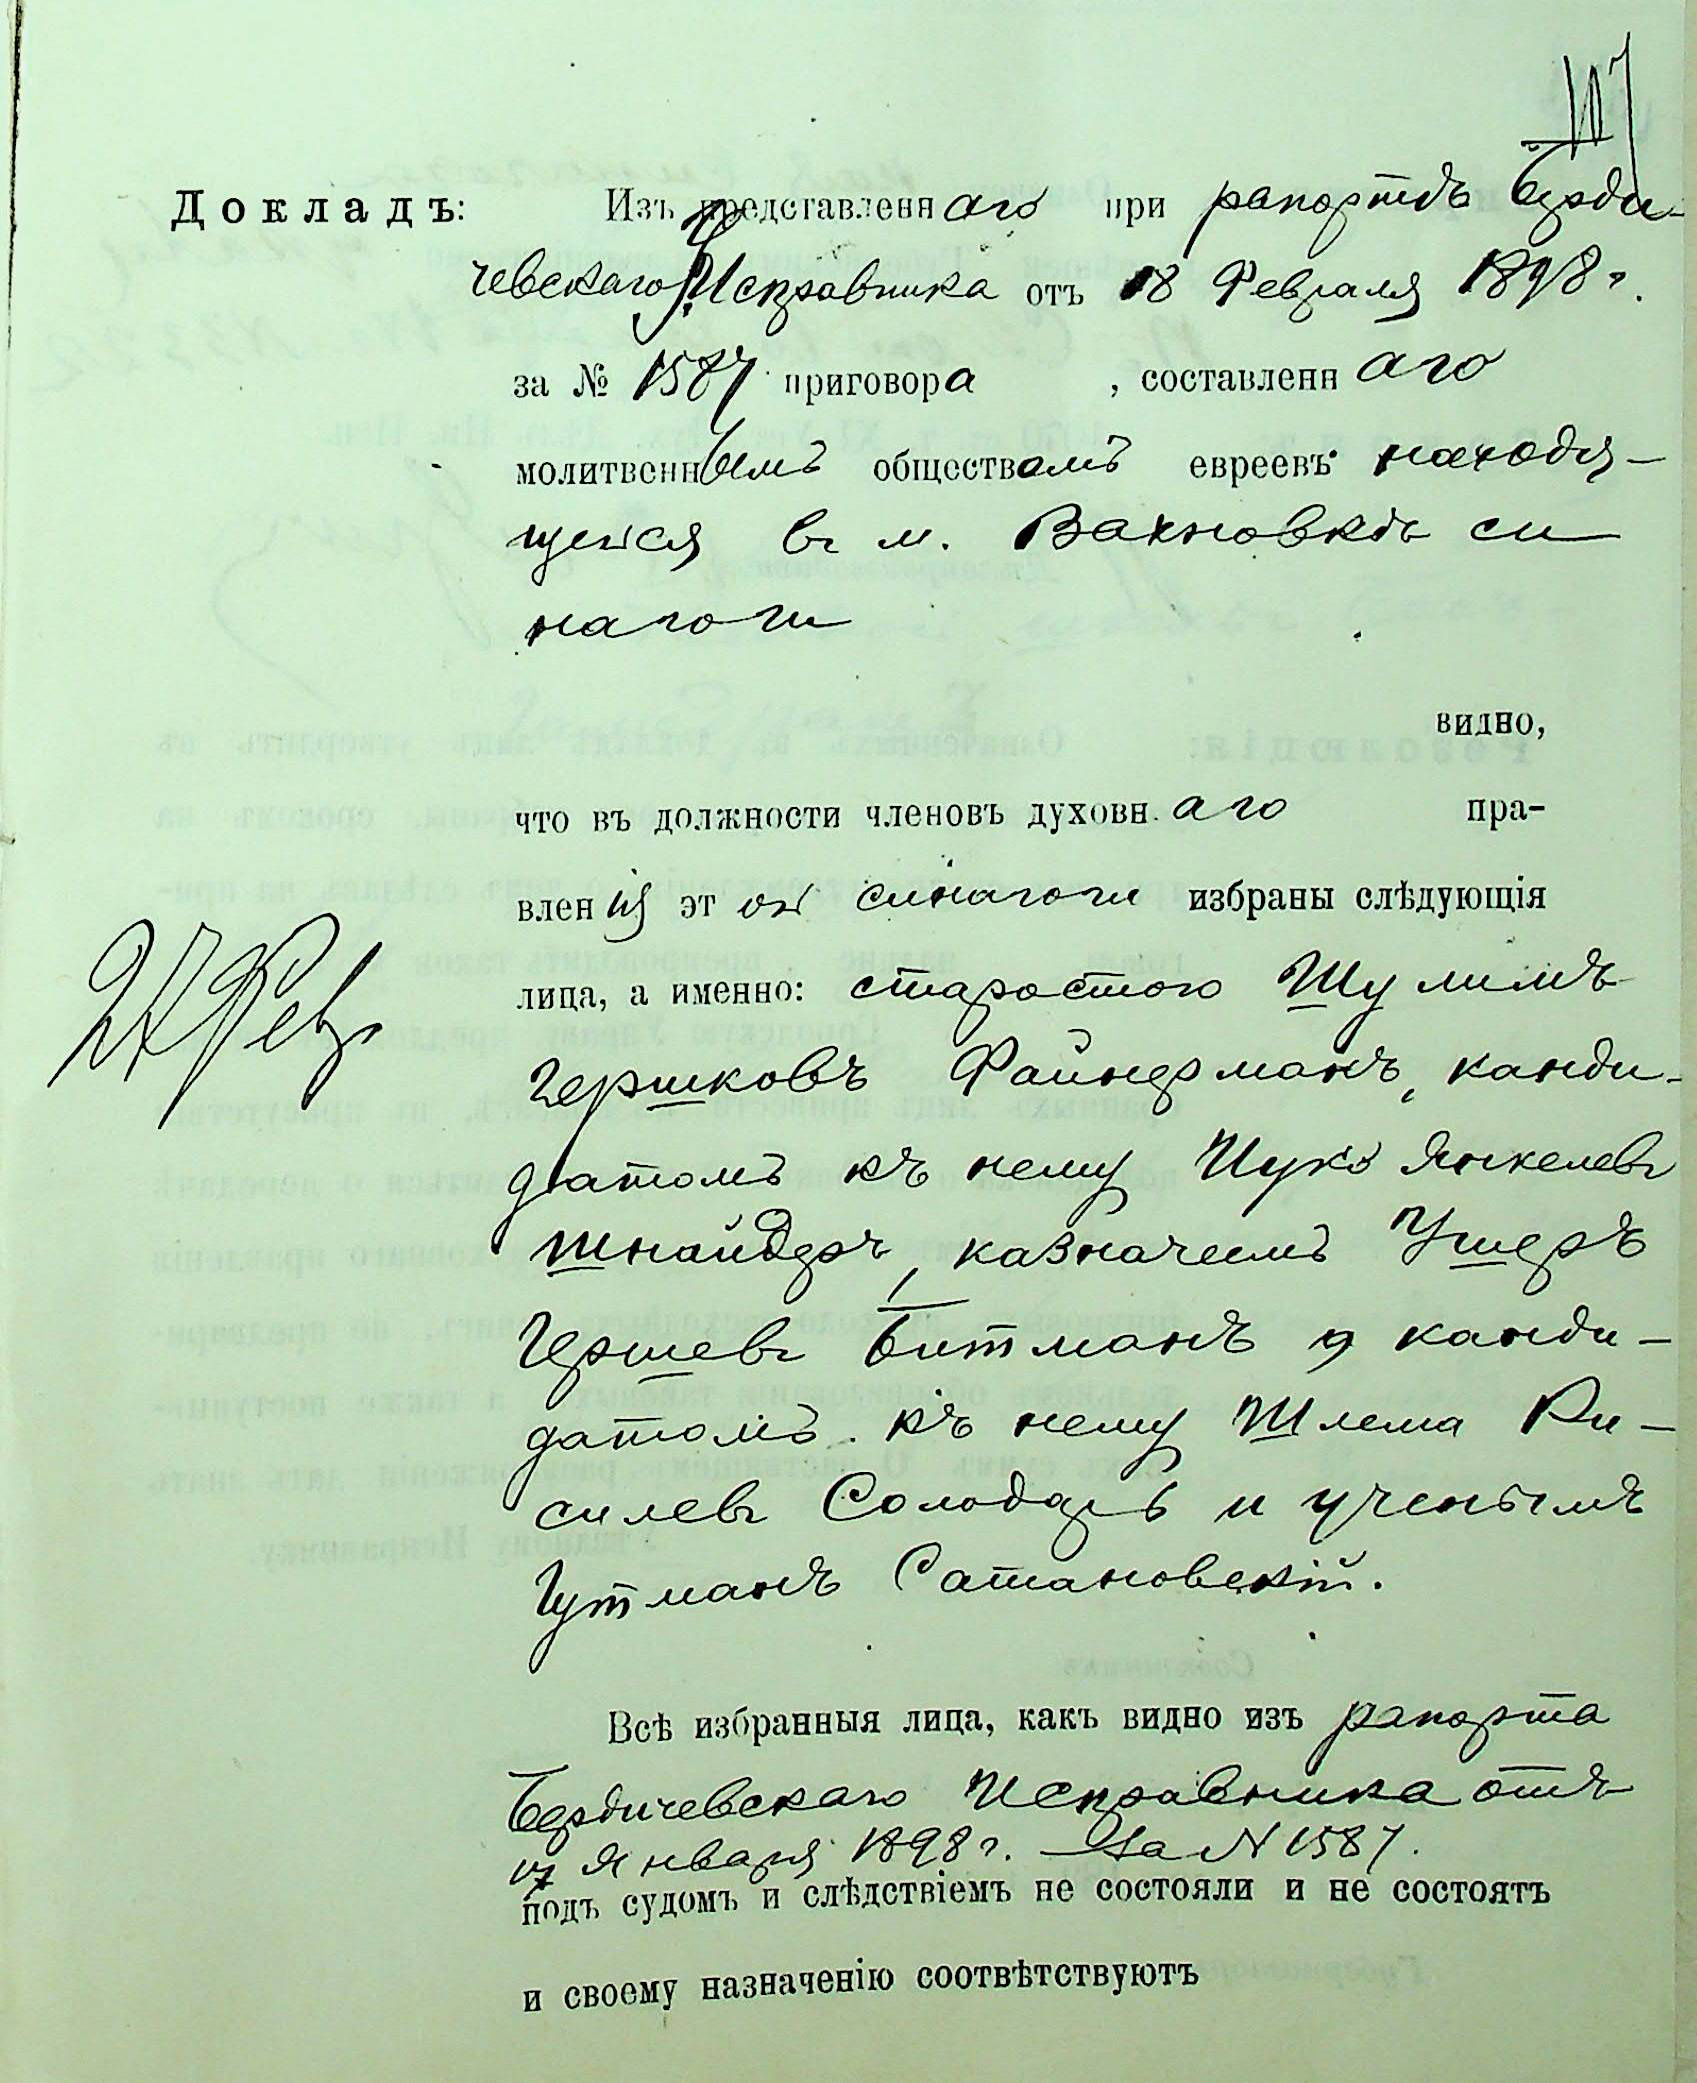 107
Докладъ: Изъ представленнаго при рапортѣ Берди-
чевскаго Исправника отъ 18 Февраля 1898 г.
за № 1587 приговора, составленнаго
молитвеннымъ обществомъ евреевъ находя-
щейся въ м. Вахновкѣ си
нагоги
видно,
что въ должности членовъ духовнаго пра-
вленія этой синагоги избраны слѣдующія
лица, а именно: старостою Шулимъ
Гершковъ Файнерманъ, канди-
датомъ къ нему Шуко Янкелевъ
Шнайдеръ, казначеемъ Ушеръ
Гершевъ Битманъ, канди-
датомъ къ нему Шлема Ри-
силевъ Солодарь и ученымъ
Гутманъ Сатановскій.
Всѣ избранныя лица, какъ видно изъ рапорта
Бердичевскаго Исправника отъ
17 Января 1898 г. За № 1587.
подъ судомъ и слѣдствіемъ не состояли и не состоятъ
и своему назначенію соотвѣтствуютъ